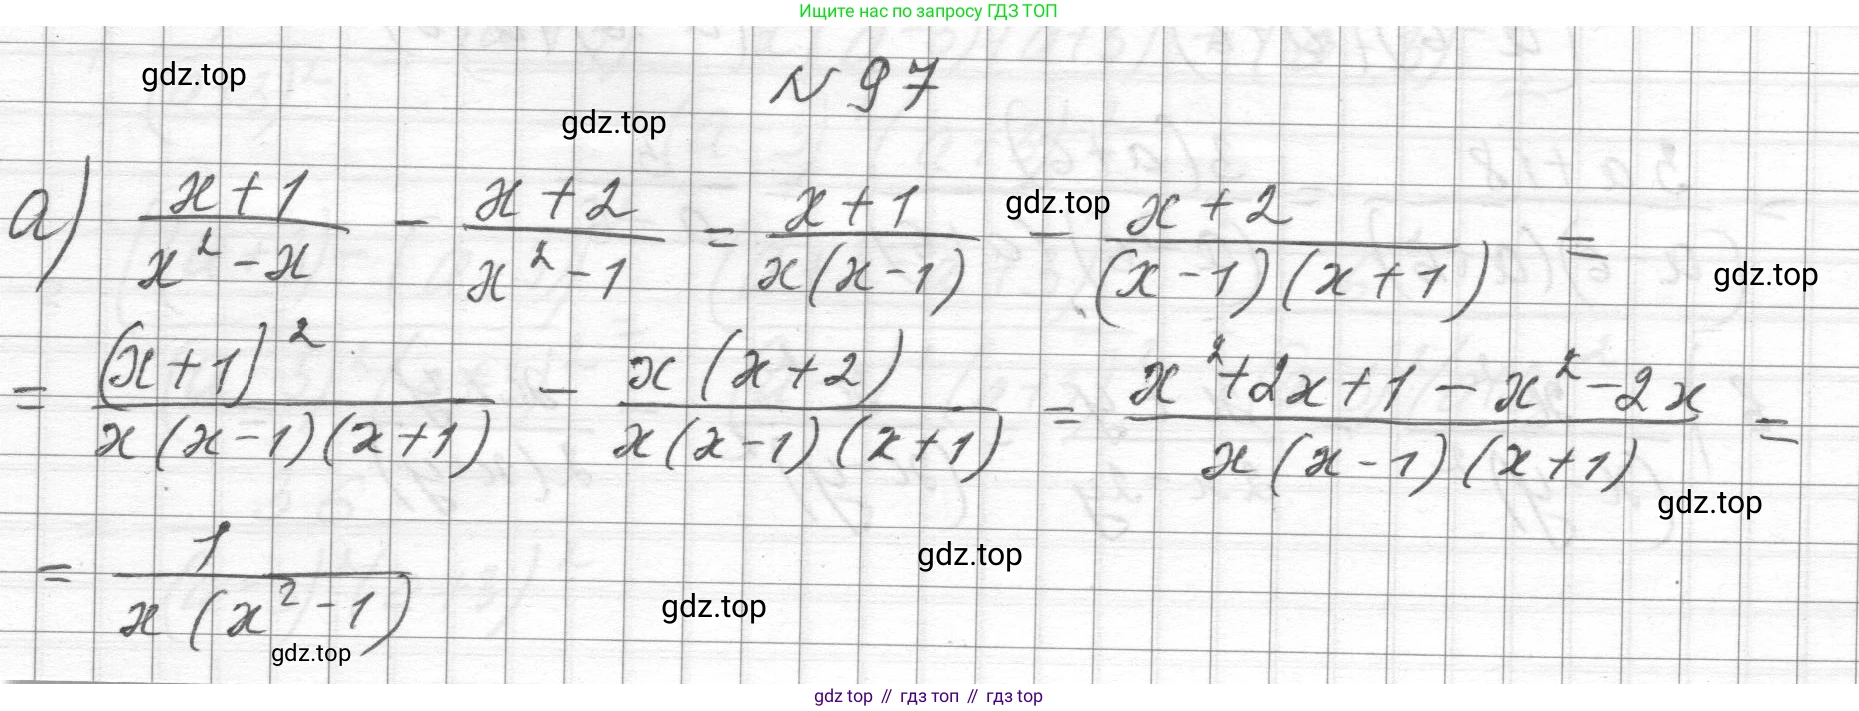 Ищите нас по запросу ГДЗ ТОП
gdz.top
№ 97
gdz.top
а) \frac{x+1}{x^2-x} - \frac{x+2}{x^2-1} = \frac{x+1}{x(x-1)} - \frac{x+2}{(x-1)(x+1)} =
gdz.top
gdz.top
= \frac{(x+1)^2}{x(x-1)(x+1)} - \frac{x(x+2)}{x(x-1)(x+1)} = \frac{x^2+2x+1-x^2-2x}{x(x-1)(x+1)} =
gdz.top
= \frac{1}{x(x^2-1)}
gdz.top
gdz.top
gdz.top
gdz top // гдз топ // гдз top